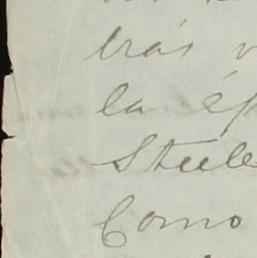 brás v
la ép
Steele
Como